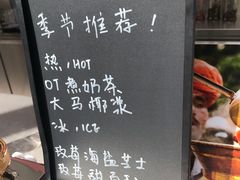 季节推荐！
热，HOT
OT煮奶茶
大马椰浆
冰，ICE
玫莓海盐芝士
玫莓